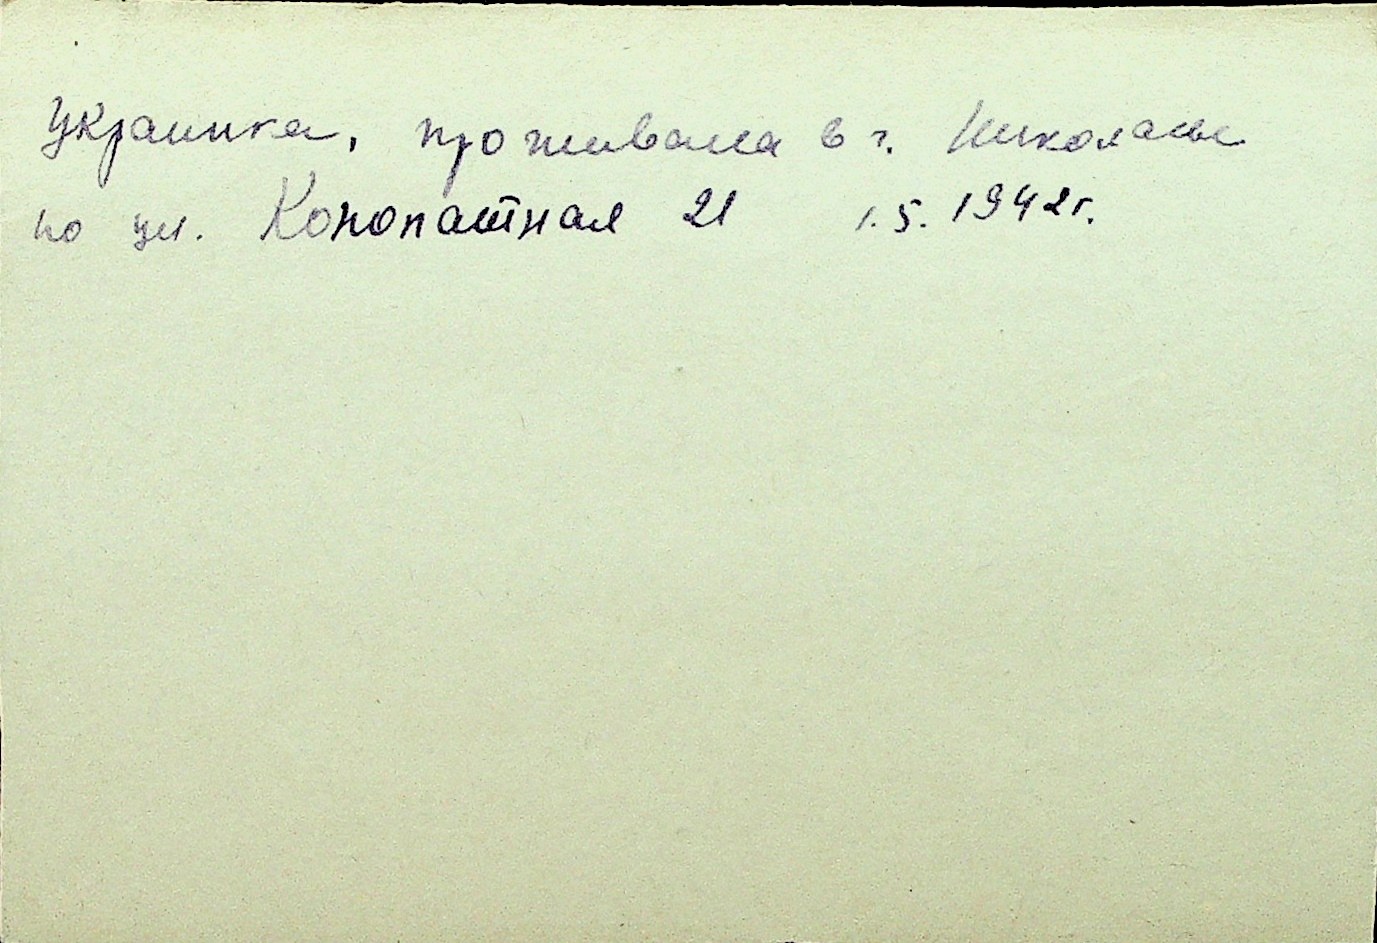 Украинка, проживала в г. Николаеве
по ул. Конопатная 21 1.5.1942г.